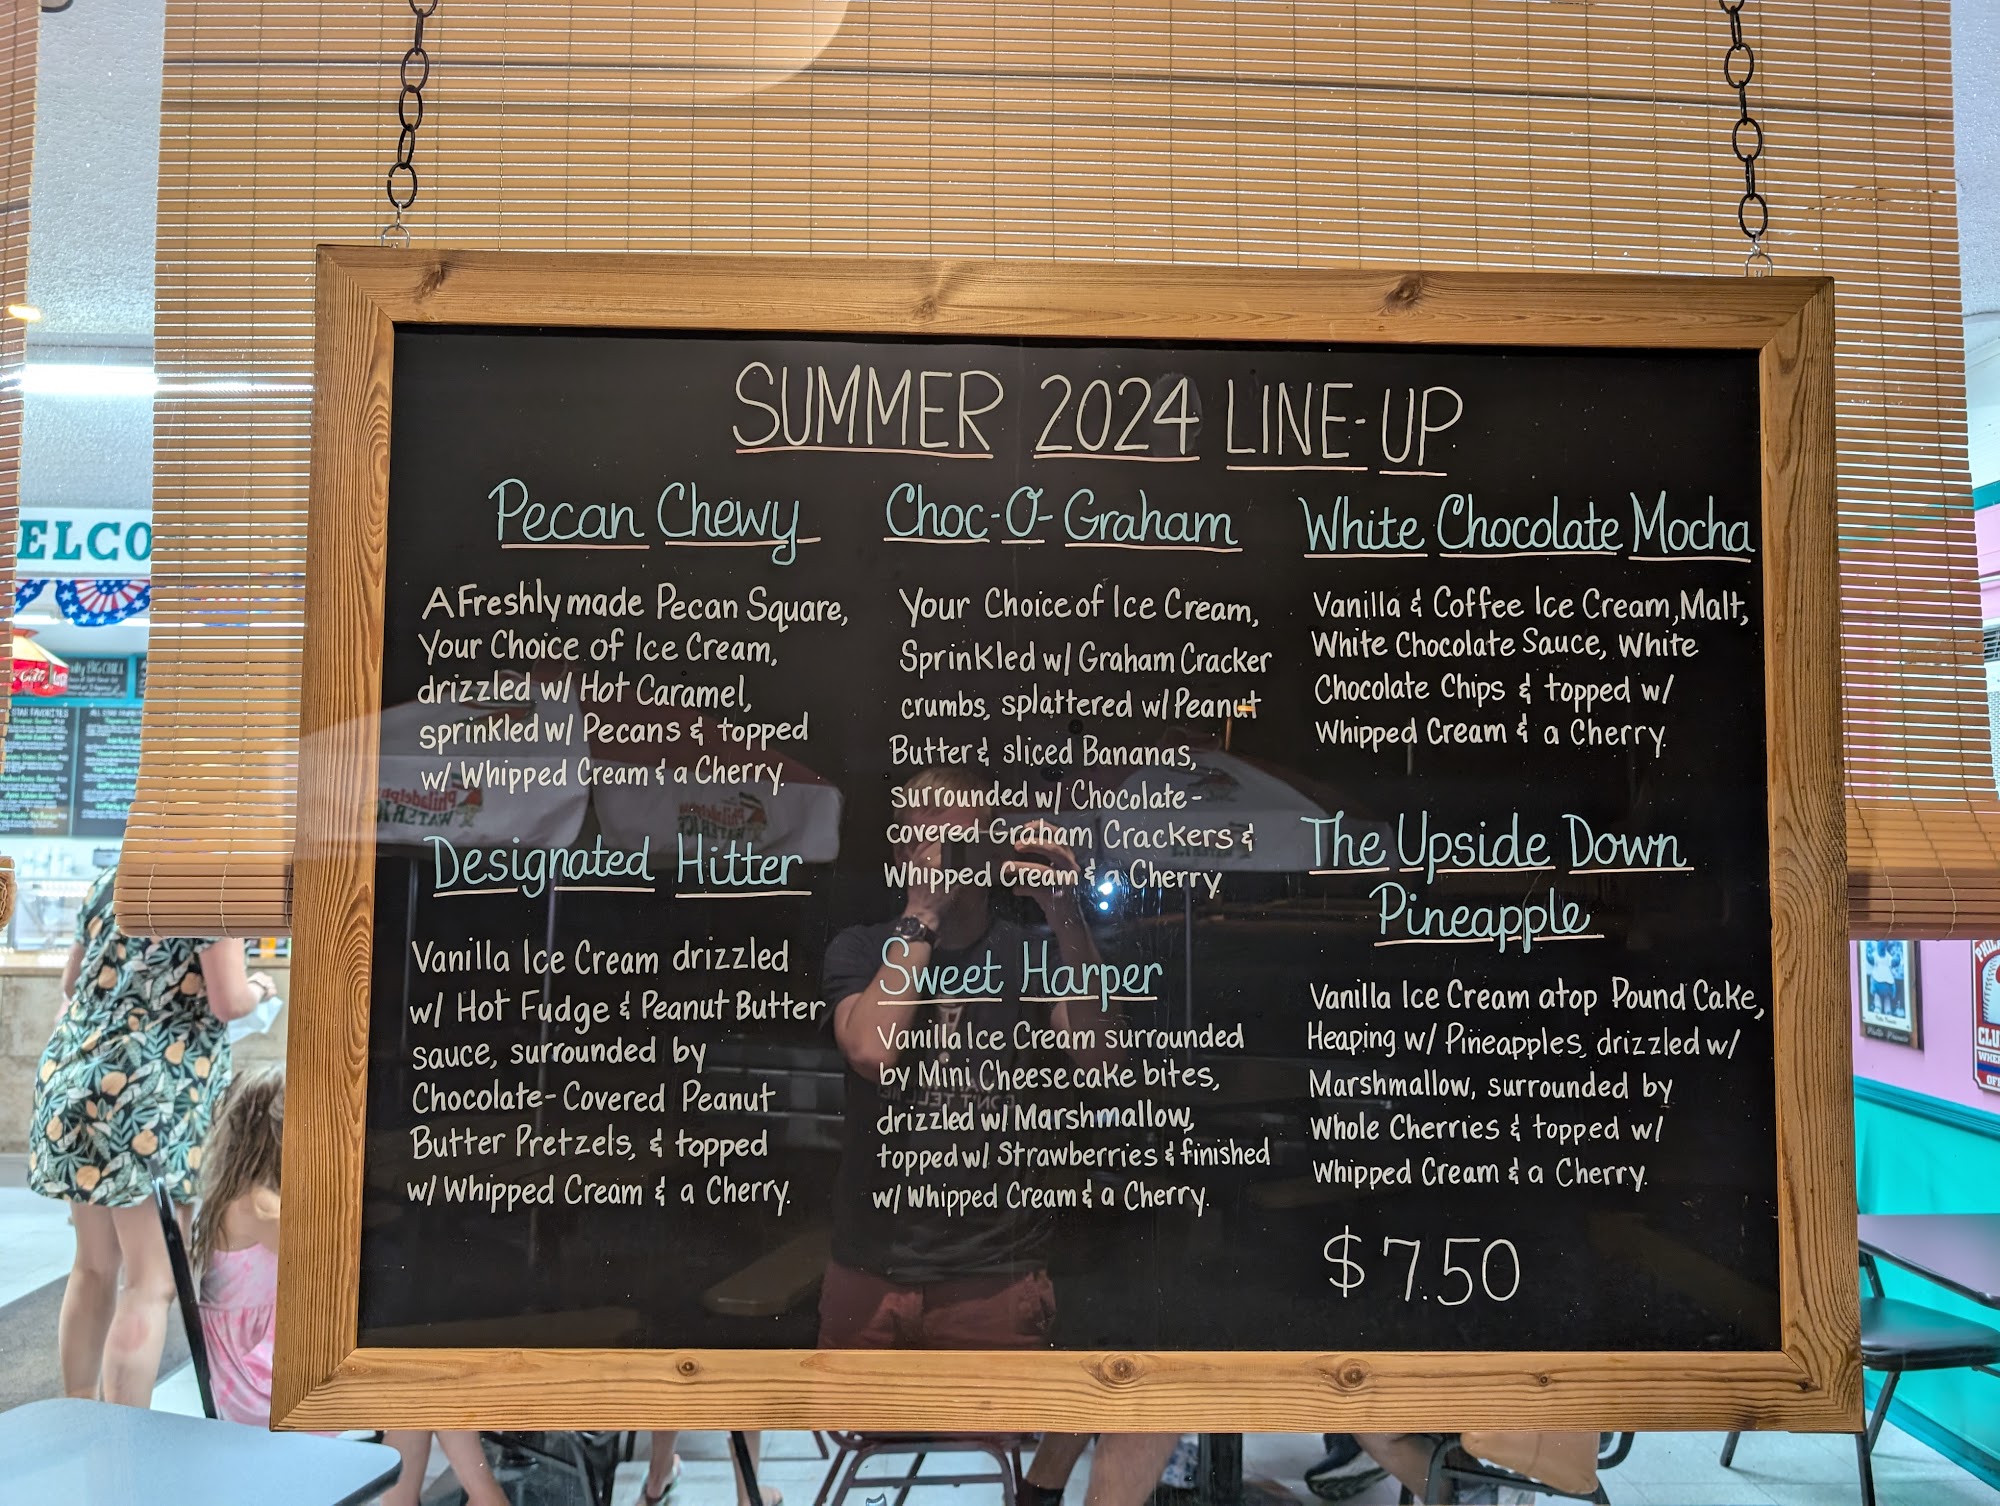 SUMMER 2024 LINE-UP
Pecan Chewy
A Freshly made Pecan Square,
Your Choice of Ice Cream,
drizzled w/ Hot Caramel,
sprinkled w/ Pecans & topped
w/ Whipped Cream & a Cherry.
Designated Hitter
Vanilla Ice Cream drizzled
w/ Hot Fudge & Peanut Butter
sauce, surrounded by
Chocolate-Covered Peanut
Butter Pretzels, & topped
w/ Whipped Cream & a Cherry.
Choc-O-Graham
Your Choice of Ice Cream,
Sprinkled w/ Graham Cracker
crumbs, splattered w/ Peanut
Butter & sliced Bananas,
surrounded w/ Chocolate-
covered Graham Crackers &
Whipped Cream & a Cherry.
Sweet Harper
Vanilla Ice Cream surrounded
by Mini Cheesecake bites,
drizzled w/ Marshmallow,
topped w/ Strawberries & finished
w/ Whipped Cream & a Cherry.
White Chocolate Mocha
Vanilla & Coffee Ice Cream, Malt,
White Chocolate Sauce, White
Chocolate Chips & topped w/
Whipped Cream & a Cherry.
The Upside Down
Pineapple
Vanilla Ice Cream atop Pound Cake,
Heaping w/ Pineapples, drizzled w/
Marshmallow, surrounded by
Whole Cherries & topped w/
Whipped Cream & a Cherry.
$7.50
ELCO